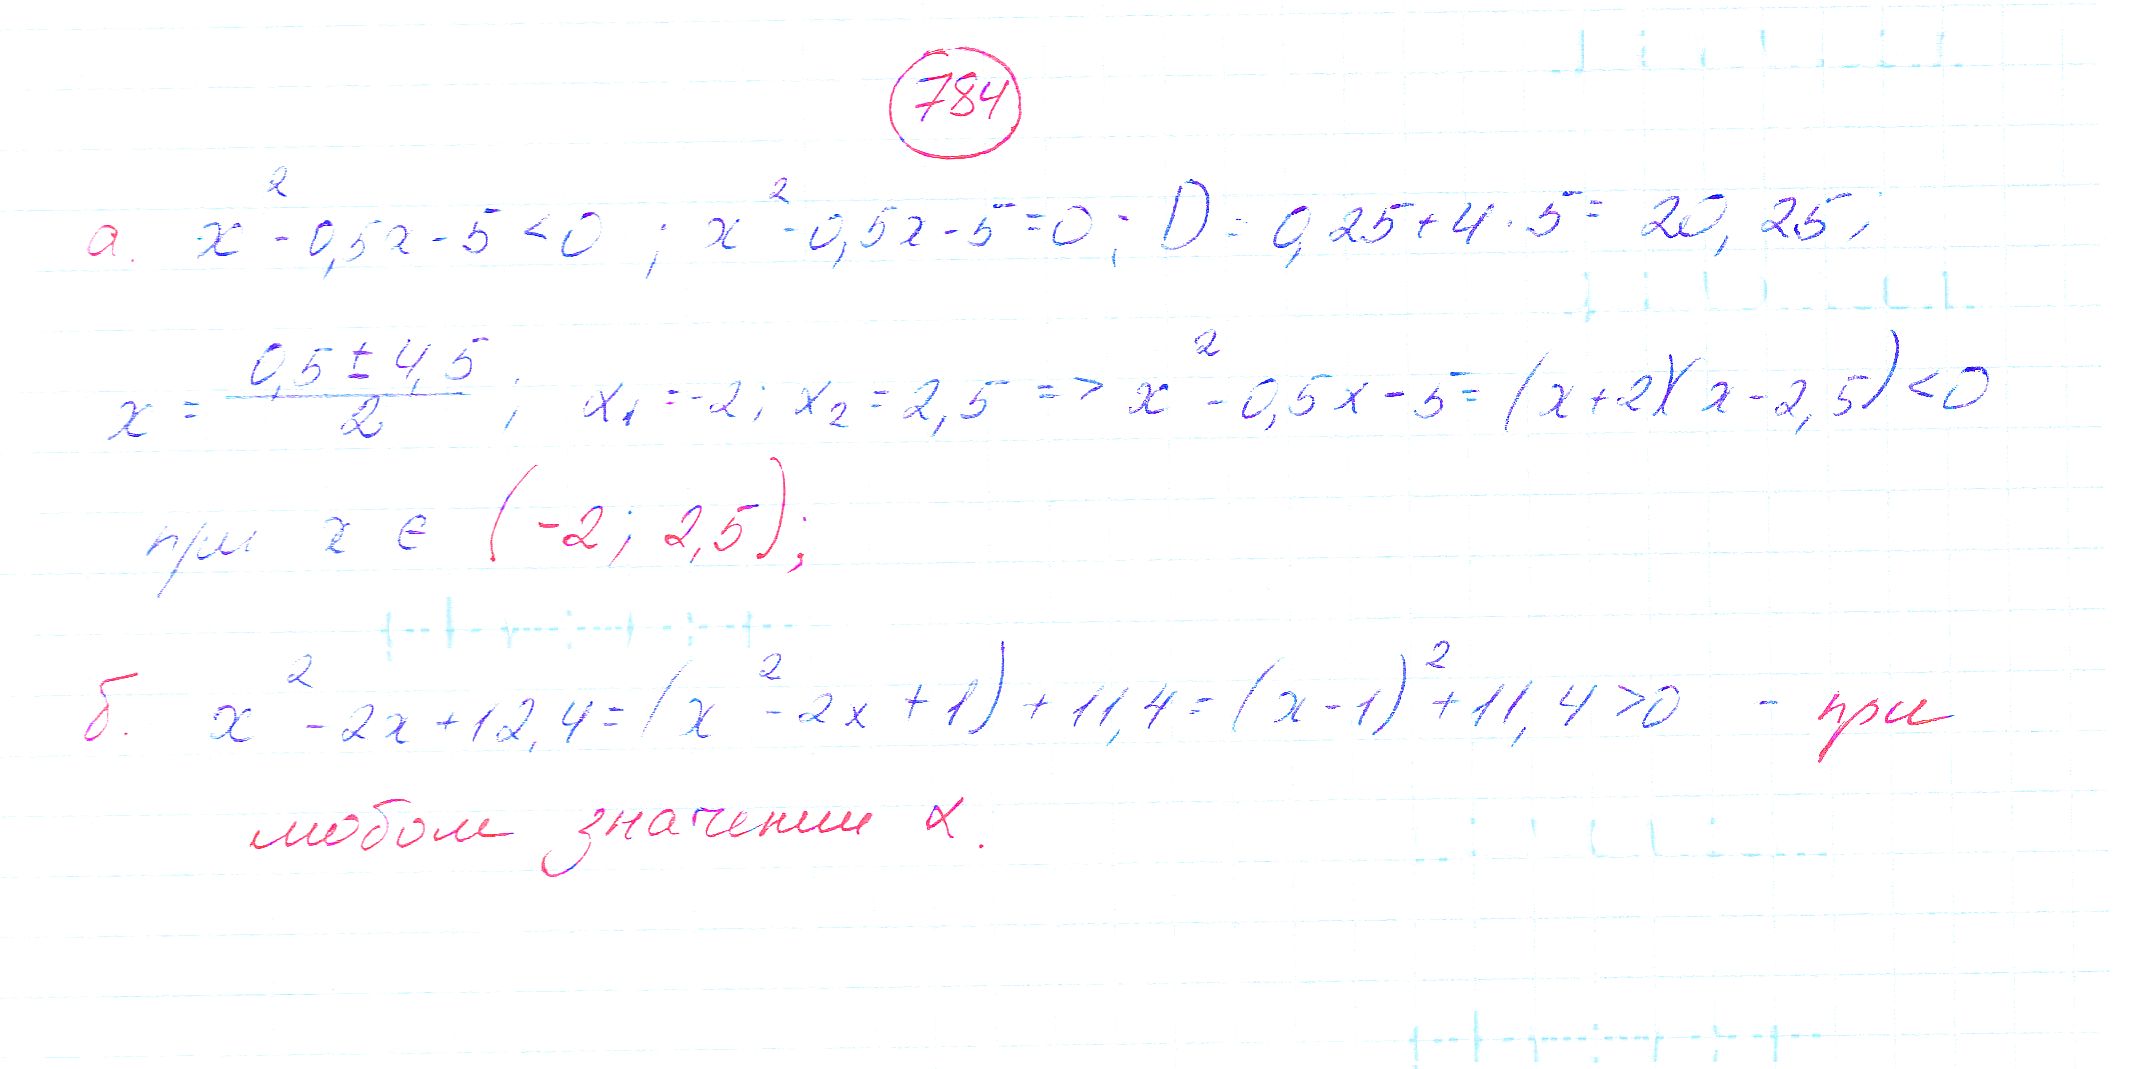 784
а. x² - 0,5x - 5 < 0 ; x² - 0,5x - 5 = 0 ; D = 0,25 + 4 · 5 = 20,25 ;
x = (0,5 ± 4,5)/2 ; x₁ = -2 ; x₂ = 2,5 => x² - 0,5x - 5 = (x + 2)(x - 2,5) < 0
при x ∈ (-2 ; 2,5) ;
б. x² - 2x + 12,4 = (x² - 2x + 1) + 11,4 = (x - 1)² + 11,4 > 0 - при
любом значении x.